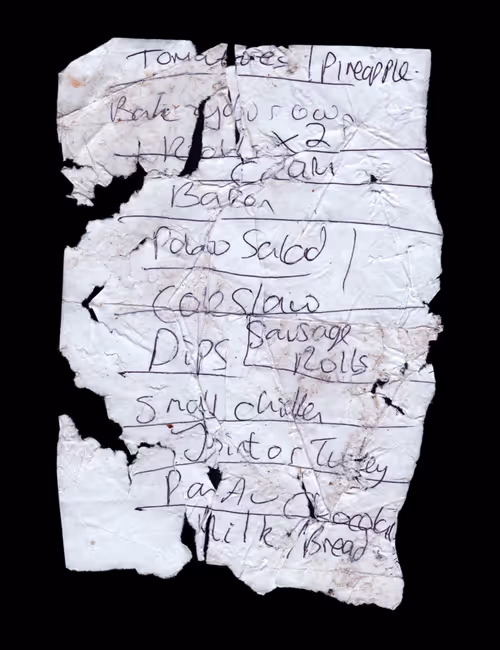 Tomatoes | Pineapple.
Bake your own
+ Rolls x2
Cream
Bacon
Potato Salad
Coleslaw
Dips Sausage Rolls
Small chicken
Joint or Turkey
Chocolate
Milk / Bread